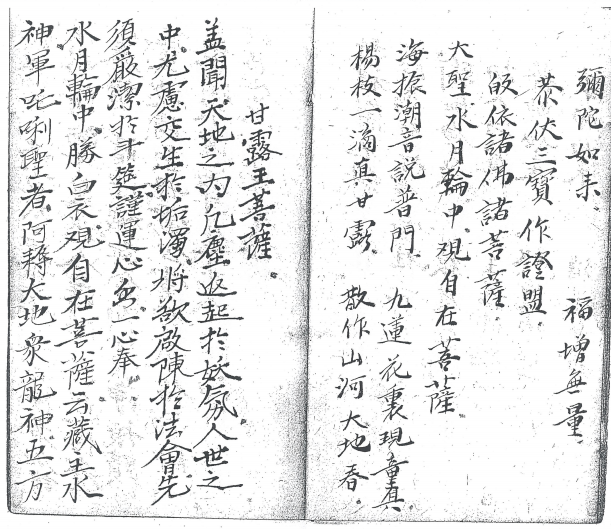 彌陀如来 福增無量
恭伏三寳作證盟
皈依諸佛諸菩薩
大聖水月輪中観自在菩薩
海振潮音説普門 九蓮花裏現童真
楊枝一滴真甘露 散作山河大地春
甘露王菩薩
盖聞天地之内凡塵返起扵妖氛人世之
中尤慮交生扵垢濁将欲啟陳扵法會先
須嚴潔扵斗筵謹運心 一心奉
水月輪中勝白衣观自在菩薩云藏主水
神軍吒唎聖者阿耨大地衆龍神五方